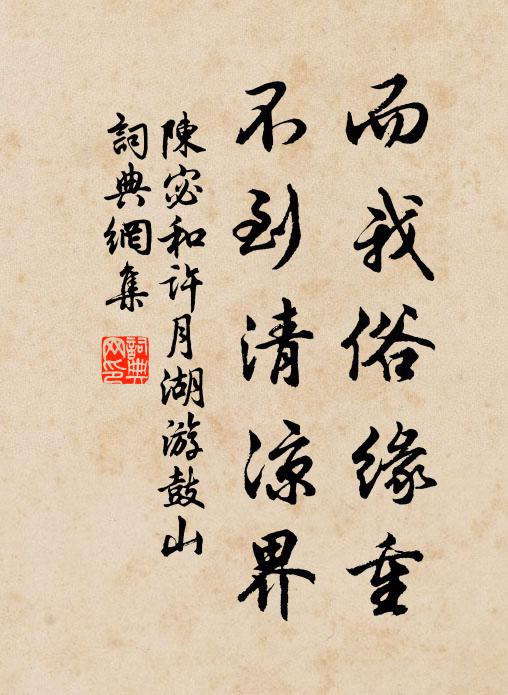 而我俗缘重
不到清凉界
陳宓和許月湖游鼓山
詞典網集
詞典網印